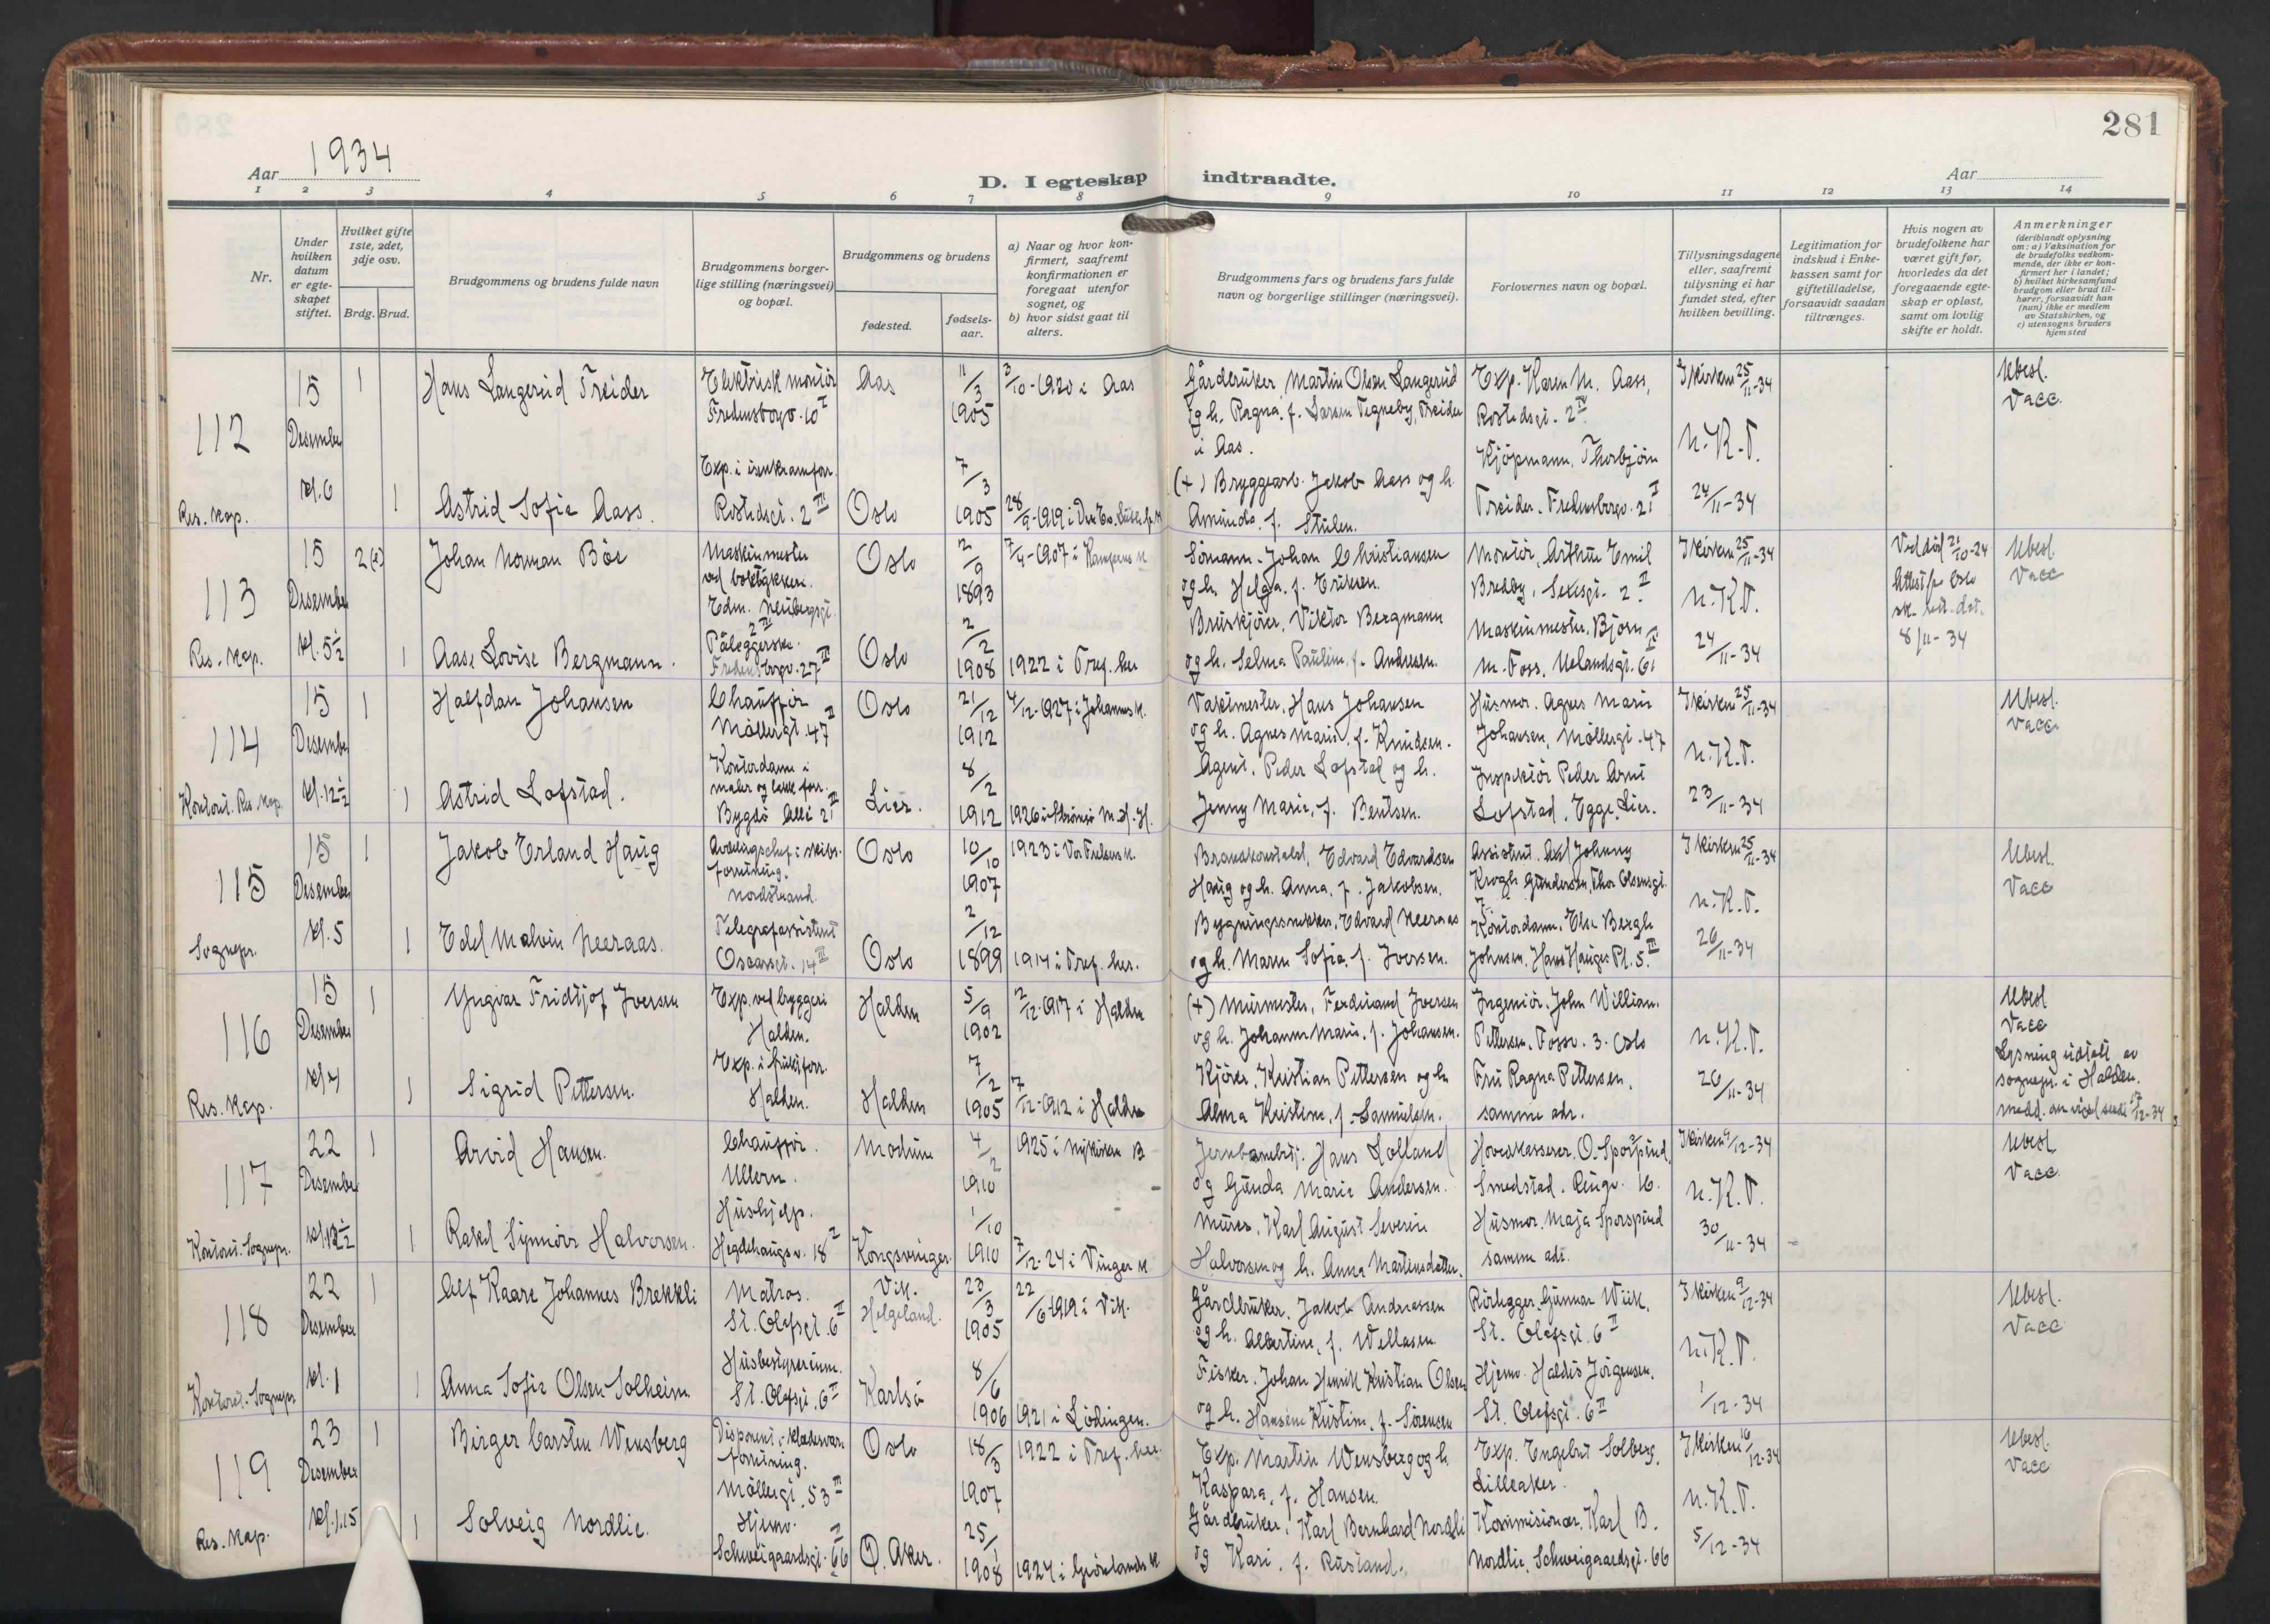 281
Aar 1934
D. I egteskap indtraadte.
Aar
1 2 3 4 5 6 7 8 9 10 11 12 13 14
Nr.
Under hvilken datum er egte-skapet stiftet.
Hvilket gifte 1ste, 2det, 3dje osv.
Brdg. Brud.
Brudgommens og brudens fulde navn
Brudgommens borger-lige stilling (næringsvei) og bopæl.
Brudgommens og brudens
fødested.
fødsels-aar.
a) Naar og hvor kon-firmert, saafremt konfirmationen er foregaat utenfor sognet, og
b) hvor sidst gaat til alters.
Brudgommens fars og brudens fars fulde navn og borgerlige stillinger (næringsvei).
Forlovernes navn og bopæl.
Tillysningsdagene eller, saafremt tillysning ei har fundet sted, efter hvilken bevilling.
Legitimation for indskud i Enke-kassen samt for giftetilladelse, forsaavidt saadan tiltrænges.
Hvis nogen av brudefolkene har været gift før, hvorledes da det foregaaende egte-skap er opløst, samt om lovlig skifte er holdt.
Anmerkninger
(deriblandt oplysning om: a) Vaksination for de brudefolks vedkom-mende, der ikke er kon-firmert her i landet;
b) hvilket kirkesamfund brudgom eller brud til-hører, forsaavidt han (hun) ikke er medlem av Statskirken, og
c) utensogns bruders hjemsted
112
Res. Kap.
15 Desember kl. 6
1
Hans Langerud Treider
Elektrisk montör
Fredensborgv. 10 I
Aas
11/3 1905
3/10-1920 i Aas
Gårdbruker, Martin Olsen Langerud
og h. Ragna, f. Larsen Tegneby, Treider
i Aas.
Exp. Karen M. Aass,
Rostedsgt. 2 IV
I kirken 25/11-34
N.K.T.
24/11-34
Ubesl.
Vacc.
1
Astrid Sofie Aass.
Exp. i isenkramforr.
Rostedsgt. 2 III
Oslo
7/3 1905
(+) Bryggearb. Jakob Aass og h.
Amunda, f. Stulen.
Kjöpmann, Thorbjörn
Treider. Fredensborgv. 21 I
113
Res. Kap.
15 Desember kl. 5½
Johan Norman Böe
Maskinmester
Edm. Neubergsgt.
2 III
Oslo
2/9 1893
Sömann. Johan Christiansen
og h. Helga, f. Eriksen.
Montör, Arthur Emil
Bredby, Sexesgt. 2 II
I kirken 25/11-34
N.K.T.
24/11-34
Ved död 21/10-24
8/11-34
Ubesl.
Vacc
1
Aase Lovise Bergmann.
Påleggerske.
Fredensborgv. 27 II
Oslo
2/2 1908
1922 i Tref. her
Bruskjörer, Viktor Bergmann
og h. Selma Pauline, f. Andresen.
Maskinmester, Bjorn
M. Foss, Uelandsgt. 61
114
Kontoret. Res. Kap.
15 Desember kl. 12½
1
Halfdan Johansen
Chaufför
Möllergt. 47 I
Oslo
21/12 1912
4/12-1927 i Johannesk.
Vaktmester, Hans Johansen
og h. Agnes Marie, f. Knudsen.
Husmor. Agnes Marie
Johansen, Möllergt. 47
I kirken 25/11-34
N.K.T.
23/11-34
Ubesl.
Vacc.
1
Astrid Lofstad.
Kontordame i
maler og lakk forr.
Bygdö Allé 21 II
Lier.
8/2 1912
Agent, Peder Lofstad og h.
Jenny Marie, f. Bentsen.
Inspektör Peder Arnt
Lofstad, Egge, Lier.
115
Sognepr.
15 Desember kl. 5
1
Jakob Erland Haug
Avdelingschef i skibs-
forretning.
Nordstrand.
Oslo
10/10 1907
1923 i Vor Frelsers k.
Brandkonstabel, Edvard Edvardsen
Haug og h. Anna, f. Jakobsen.
Assistent. Axel Johnny
Krogh Gundersen, Thor Olsensgt.
I kirken 25/11-34
N.K.T.
26/11-34
Ubesl.
Vacc
1
Edel Malvin Neeraas.
Telegrafassistent
Oscarsgt. 14 III
Oslo
2/12 1899
1914 i Tref. her.
Bygningssnekker, Edvard Neeraas
og h. Maren Sofie, f. Iversen.
Kontordame, Else Bergh
Johnsen, Hans Hauges Pl. 5 III
116
Res. Kap.
15 Desember kl. 4
1
Yngvar Fridtjof Iversen
Exp. ved bryggeri
Halden.
Halden
5/9 1902
2/12-1917 i Halden
(+) Murmester, Ferdinand Iversen
og h. Johanne Marie, f. Johansen.
Ingeniör, John William.
Pettersen, Fossv. 3. Oslo
N.K.T.
26/11-34
Ubesl
Vacc
Lysning uttatt av
sognepr. i Halden.
1
Sigrid Pettersen.
Exp. i fruktforr.
Halden.
Halden
7/2 1905
Kjörer, Kristian Pettersen og h.
Alma Kristine, f. Samuelsen.
Fru Ragna Pettersen,
samme adr.
117
Kontoret. Sognepr.
22 Desember
1
Arvid Hansen.
Chaufför.
Ullern.
Modum
4/2 1910
1925 i Nykirken B
Jernbanebetj. Hans Lolland
og Gunda Marie Andersen.
Hovedkasserer, O. Sporpind,
Smedstad. Ringv. 16.
I kirken 9/12-34
N.K.T.
30/11-34
Ubesl.
Vacc.
1
Rakel Synnöve Halvorsen.
Hushjelp.
Hegdehaugsv. 18 2
Kongsvinger
1/10 1910
7/12-24 i Vinger k
Murer, Karl August Severin
Halvorsen og h. Anna Martinsdatter.
Husmor. Maja Sporspind
samme adr.
118
Kontoret. Sognepr
22 Desember kl. 1
1
Alf Kaare Johannes Brekkli
Matros.
St. Olafsgt. 6 II
Vik.
Helgeland.
23/3 1905
22/6 1919 i Vik.
Gårdbruker, Jakob Andreassen
og h. Albertine, f. Wellesen
Rörlegger, Gunnar Wiik,
St. Olafsgt. 6 II
I kirken 9/12-34
N.K.T.
1/12-34
Ubesl.
Vacc
1
Anna Sofie Olsen Solheim
Husbestyrerinne.
St. Olafsgt. 6 II
Karlsö
8/6 1906
1921 i Lödingen.
Fisker, Johan Henrik Kristian Olsen
og h. Hansine Kristine, f. Sörensen
Hjemv. Haldis Jörgensen.
St. Olafsgt. 6 II
119
Res. Kap.
23 Desember kl. 1.15
1
Birger Carsten Wensberg
Disponent i klædesvare
forretning.
Möllergt. 53 III
Oslo
18/3 1907
1922 i Tref. her.
Exp. Martin Wensberg og h.
Kaspara, f. Hansen.
Exp. Engebret Solberg,
Lilleaker.
I kirken 16/12-34
N.K.T.
5/12-34
Ubesl.
Vacc
1
Solveig Nordlie.
Hjemv.
Schweigaardsgt. 66 II
Ö. Aker.
25/1 1908
1924 i Grönlands k
Gårdbruker, Karl Bernhard Nordli
og Kari, f. Rustand.
Kommisionær, Karl B.
Nordlie, Schweigaardsgt. 66